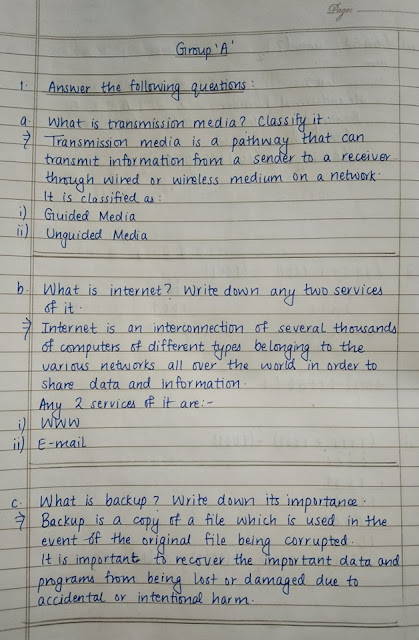 Page:
Group 'A'
1. Answer the following questions:
a. What is transmission media? Classify it.
⇒ Transmission media is a pathway that can
transmit information from a sender to a receiver
through wired or wireless medium on a network.
It is classified as:
i) Guided Media
ii) Unguided Media
b. What is internet? Write down any two services
of it.
⇒ Internet is an interconnection of several thousands
of computers of different types belonging to the
various networks all over the world in order to
share data and information.
Any 2 services of it are:-
i) WWW
ii) E-mail
c. What is backup? Write down its importance.
⇒ Backup is a copy of a file which is used in the
event of the original file being corrupted.
It is important to recover the important data and
programs from being lost or damaged due to
accidental or intentional harm.